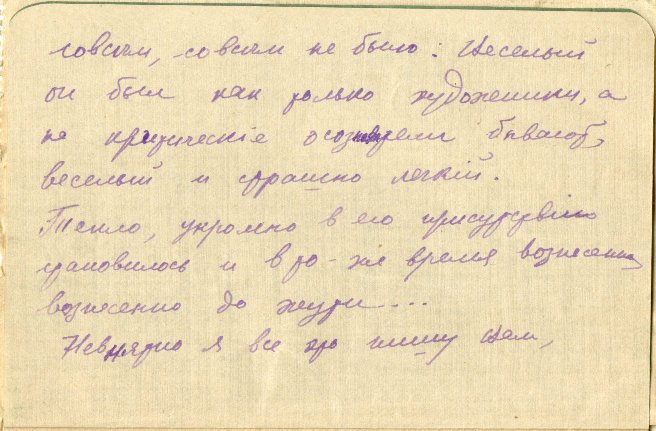 совсѣм, совсѣм не было: Веселый
он был как только художники, а
не критическіе осознатели бывают,
веселый и страшно легкій.
Тепло, укромно в его присутствіи
становилось и в то-же время вознесенно,
вознесенно до жути...
Невнятно я все это пишу Вам,